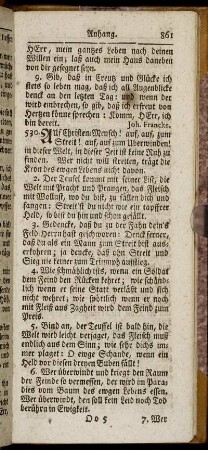 Anhang. 861
HErr, mein gantzes Leben nach deinen
Willen ein, laß auch mein Hans daneben
von dir gesegnet seyn.
9. Gib, daß in Creutz und Glücke ich
stets so leben mag, daß ich all Augenblicke
denck an den letzten Tag: und wenn der
wird einbrechen, so gib, daß ich erfreut von
Hertzen könne sprechen: Komm, HErr, ich
bin bereit. Joh. Francke.
530. Auf Christen-Mensch! auf, auf, zum
Streit! auf, auf zum Uberwinden!
in dieser Welt, in dieser Zeit ist keine Ruh zu
finden. Wer nicht will streiten, trägt die
Kron des ewgen Lebens nicht davon.
2. Der Teufel kommt mit seiner List, die
Welt mit Pracht und Prangen, das Fleisch
mit Wollust, wo du bist, zu fällen dich und
fangen: Streitst du nicht wie ein tapffrer
Held, so bist du hin und schon gefällt.
3. Gedencke, daß du zu der Fahn dein's
Feld-Herrn hast geschworen: Denck ferner,
daß du als ein Mann zum Streit bist aus-
erkohren; ja dencke, daß ohn Streit und
Sieg nie keiner zum Triumph aufstieg.
4. Wie schmählich ists, wenn ein Soldat
dem Feind den Rücken kehret; wie schänd-
lich wenn er seine Statt verläßt und sich
nicht wehret; wie spöttlich wenn er noch
mit Fleiß aus Zagheit wird dem Feind zum
Preis.
5. Bind an, der Teuffel ist bald hin, die
Welt wird leicht verjaget, das Fleisch muß
endlich aus dem Sinn; wie sehr dichs im-
mer plaget: O ewge Schande, wenn ein
Held vor diesen dreyen Buben fällt!
6. Wer überwindt und kriegt den Raum
der Feinde so vermessen, der wird im Para-
dies vom Baum des ewgen Lebens essen.
Wer überwindt, den soll kein Leid noch Tod
berührn in Ewigkeit.
O o 5 7. Wer